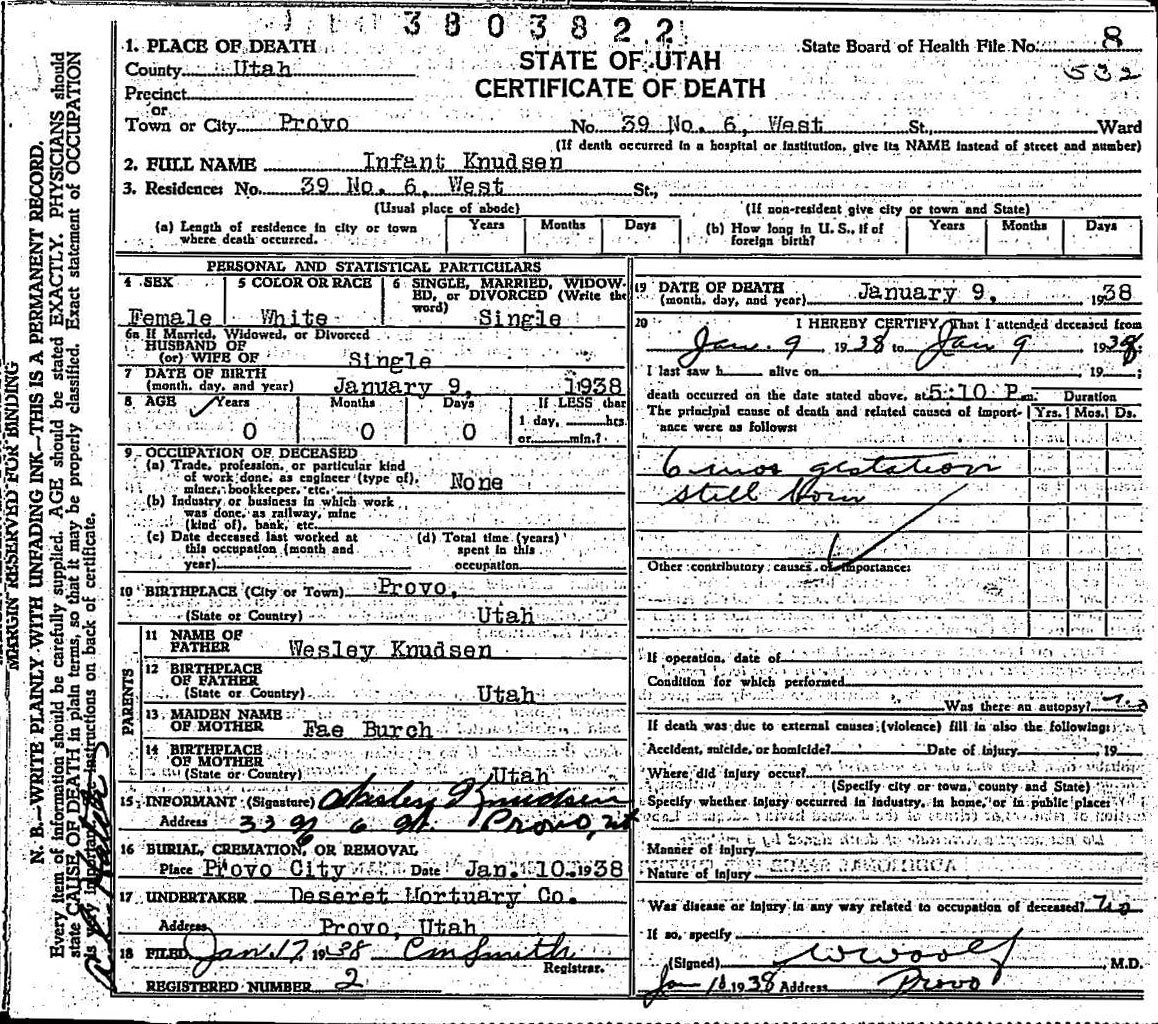 3803822
1. PLACE OF DEATH
STATE OF UTAH
CERTIFICATE OF DEATH
State Board of Health File No. 8
532
County Utah
Precinct
or
Town or City Provo No. 39 No. 6, West St., Ward
(If death occurred in a hospital or institution, give its NAME instead of street and number)
2. FULL NAME Infant Knudsen
3. Residence: No. 39 No. 6, West St.,
(Usual place of abode) (If non-resident give city or town and State)
(a) Length of residence in city or town where death occurred. Years Months Days
(b) How long in U. S., if of foreign birth? Years Months Days
PERSONAL AND STATISTICAL PARTICULARS
4 SEX Female
5 COLOR OR RACE White
6 SINGLE, MARRIED, WIDOWED, or DIVORCED (Write the word) Single
6a If Married, Widowed, or Divorced
HUSBAND OF
(or) WIFE OF Single
7 DATE OF BIRTH
(month, day, and year) January 9, 1938
8 AGE Years Months Days If LESS than
1 day, hrs.
or min.?
0 0 0
9 OCCUPATION OF DECEASED
(a) Trade, profession, or particular kind
of work done, as engineer (type of),
miner, bookkeeper, etc. None
(b) Industry or business in which work
was done, as railway, mine
(kind of), bank, etc.
(c) Date deceased last worked at
this occupation (month and
year)
(d) Total time (years)
spent in this
occupation
10 BIRTHPLACE (City or Town) Provo,
(State or Country) Utah
PARENTS
11 NAME OF
FATHER Wesley Knudsen
12 BIRTHPLACE
OF FATHER
(State or Country) Utah
13 MAIDEN NAME
OF MOTHER Fae Burch
14 BIRTHPLACE
OF MOTHER
(State or Country) Utah
15 INFORMANT (Signature) Wesley Knudsen
Address Provo, Ut
16 BURIAL, CREMATION, OR REMOVAL
Place Provo City Date Jan. 10, 1938
17 UNDERTAKER Deseret Mortuary Co.
Address Provo, Utah
18 FILED Jan. 17 1938 CM Smith
Registrar.
REGISTERED NUMBER 2
19 DATE OF DEATH
(month, day, and year) January 9, 1938
20 I HEREBY CERTIFY, That I attended deceased from
Jan. 9 1938 to Jan 9 1938;
I last saw h alive on 19 ;
death occurred on the date stated above, at 5:10 P.m. Duration
The principal cause of death and related causes of importance were as follows: Yrs. Mos. Ds.
6 mos gestation
still born
Other contributory causes of importance:
If operation, date of
Condition for which performed
Was there an autopsy? no
If death was due to external causes (violence) fill in also the following:
Accident, suicide, or homicide? Date of injury 19
Where did injury occur?
(Specify city or town, county and State)
Specify whether injury occurred in industry, in home, or in public place:
Manner of injury
Nature of injury
Was disease or injury in any way related to occupation of deceased? no
If so, specify
(Signed) W Woolf M.D.
Jan 1938 Address Provo
MARGIN RESERVED FOR BINDING
N. B.—WRITE PLAINLY WITH UNFADING INK—THIS IS A PERMANENT RECORD.
Every item of information should be carefully supplied. AGE should be stated EXACTLY. PHYSICIANS should
state CAUSE OF DEATH in plain terms, so that it may be properly classified. Exact statement of OCCUPATION
is very important. instructions on back of certificate.